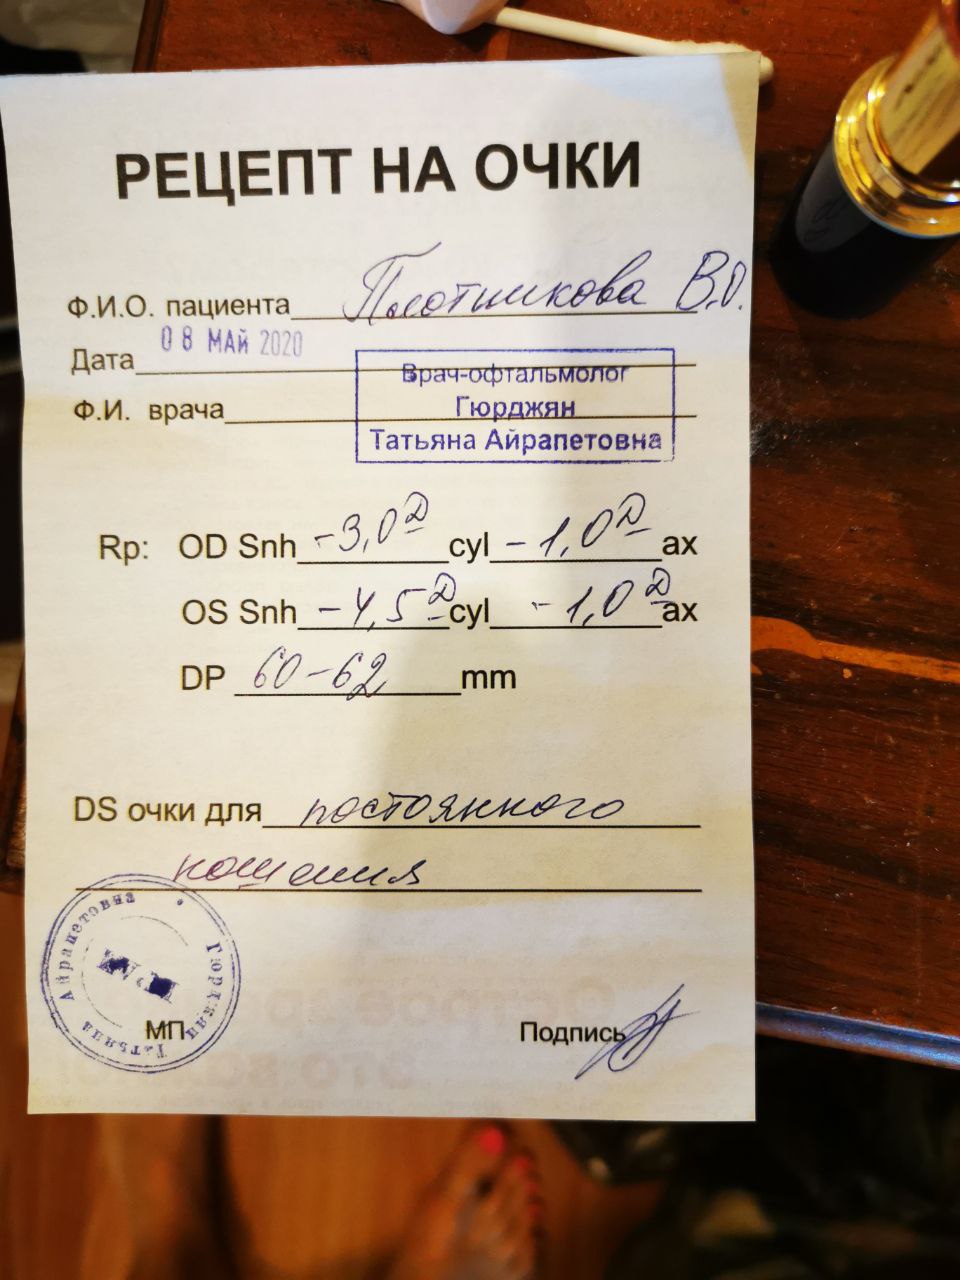 РЕЦЕПТ НА ОЧКИ
Ф.И.О. пациента Плотникова В.О.
Дата 08 МАЙ 2020
Врач-офтальмолог
Ф.И. врача Гюрджян
Татьяна Айрапетовна
Rp: OD Snh -3,0 D cyl -1,0 D ax
OS Snh -4,5 D cyl -1,0 D ax
DP 60-62 mm
DS очки для постоянного
ношения
Гюрджян Татьяна Айрапетовна
ВРАЧ
МП Подпись